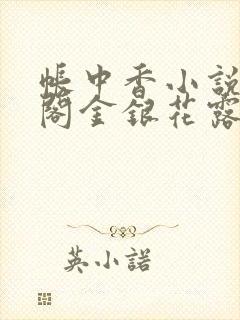 帳中香小説
閣金銀花露
英小諾